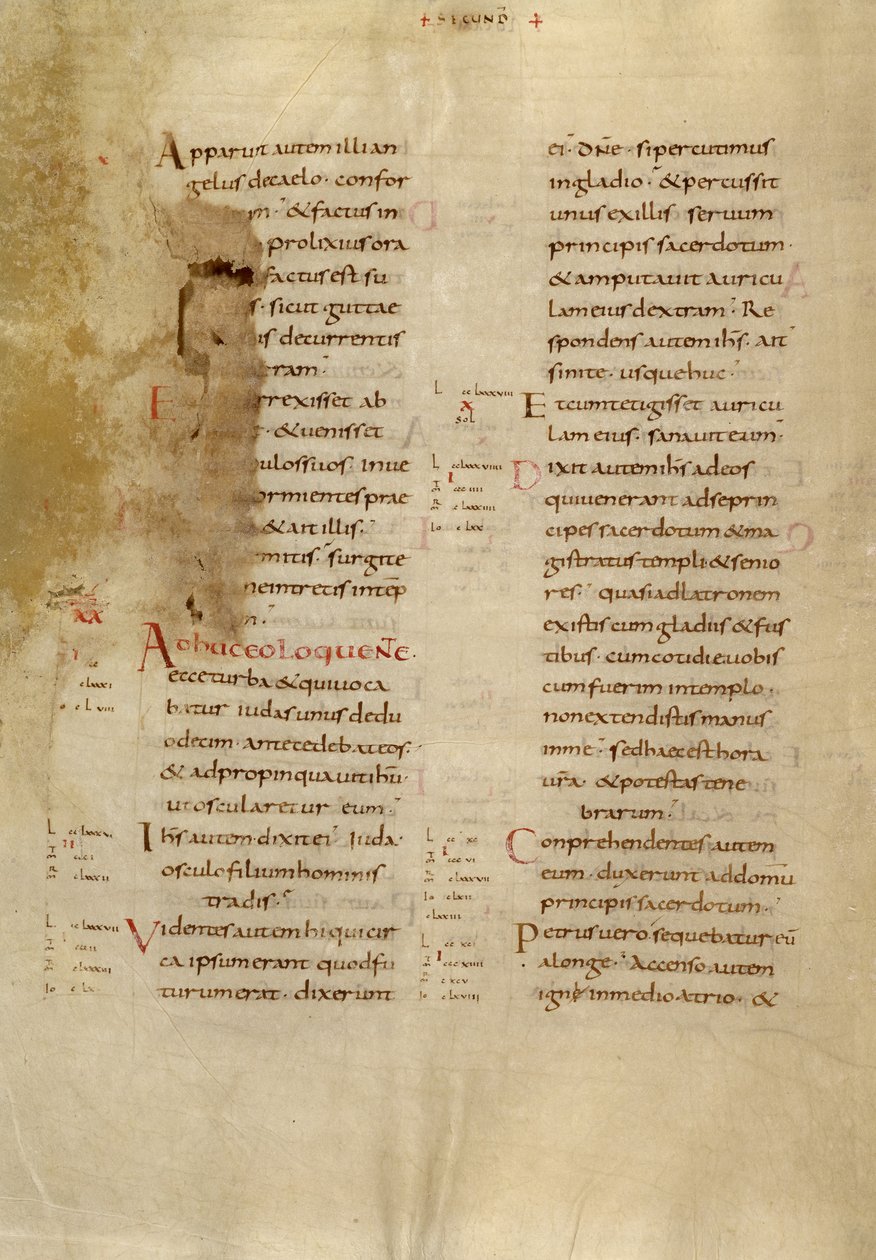 + SECUND̄ +
Apparuit autem illi an
gelus de caelo · confor
m · & factus in
prolixius ora
factus est su
s · sicut guttae
is decurrentis
eram ·
E rrexisset ab
· & uenisset
ulos suos · inue
ormientes prae
& ait illis ·
mitis · surgite
ne intretis in temp̄
n ·
XX
Adhuc eo loquente ·
ecce turba & qui uoca
batur iudas unus de du
odecim · antecedebat eos ·
& adpropinquauit ihū ·
ut oscularetur eum ·
Ihs̄ autem · dixit ei · Iuda ·
osculo filium hominis
tradis ·
Videntes autem hi qui cir
ca ipsum erant quod fu
turum erat · dixerunt
ei · dn̄e · si percutimus
in gladio · & percussit
unus ex illis seruum
principis sacerdotum ·
& amputauit auricu
lam eius dextram · Re
spondens autem ihs̄ · ait
sinite · usque huc ·
L cclxxxviii
X
SOL
Et cum tetigisset auricu
lam eius · sanauit eum ·
L cclxxxviiii
Dixit autem ihs̄ ad eos
qui uenerant ad se prin
cipes sacerdotum & ma
gistratus templi · & senio
res · quasi ad latronem
existis cum gladiis & fus
tibus · cum cotidie uobis
cum fuerim in templo ·
non extendistis manus
in me · sed haec est hora
ur̄a · & potestas tene
brarum ·
Conprehendentes autem
eum · duxerunt ad domū
principis sacerdotum ·
Petrus uero sequebatur eū
a longe · Accenso autem
igne in medio atrio · &